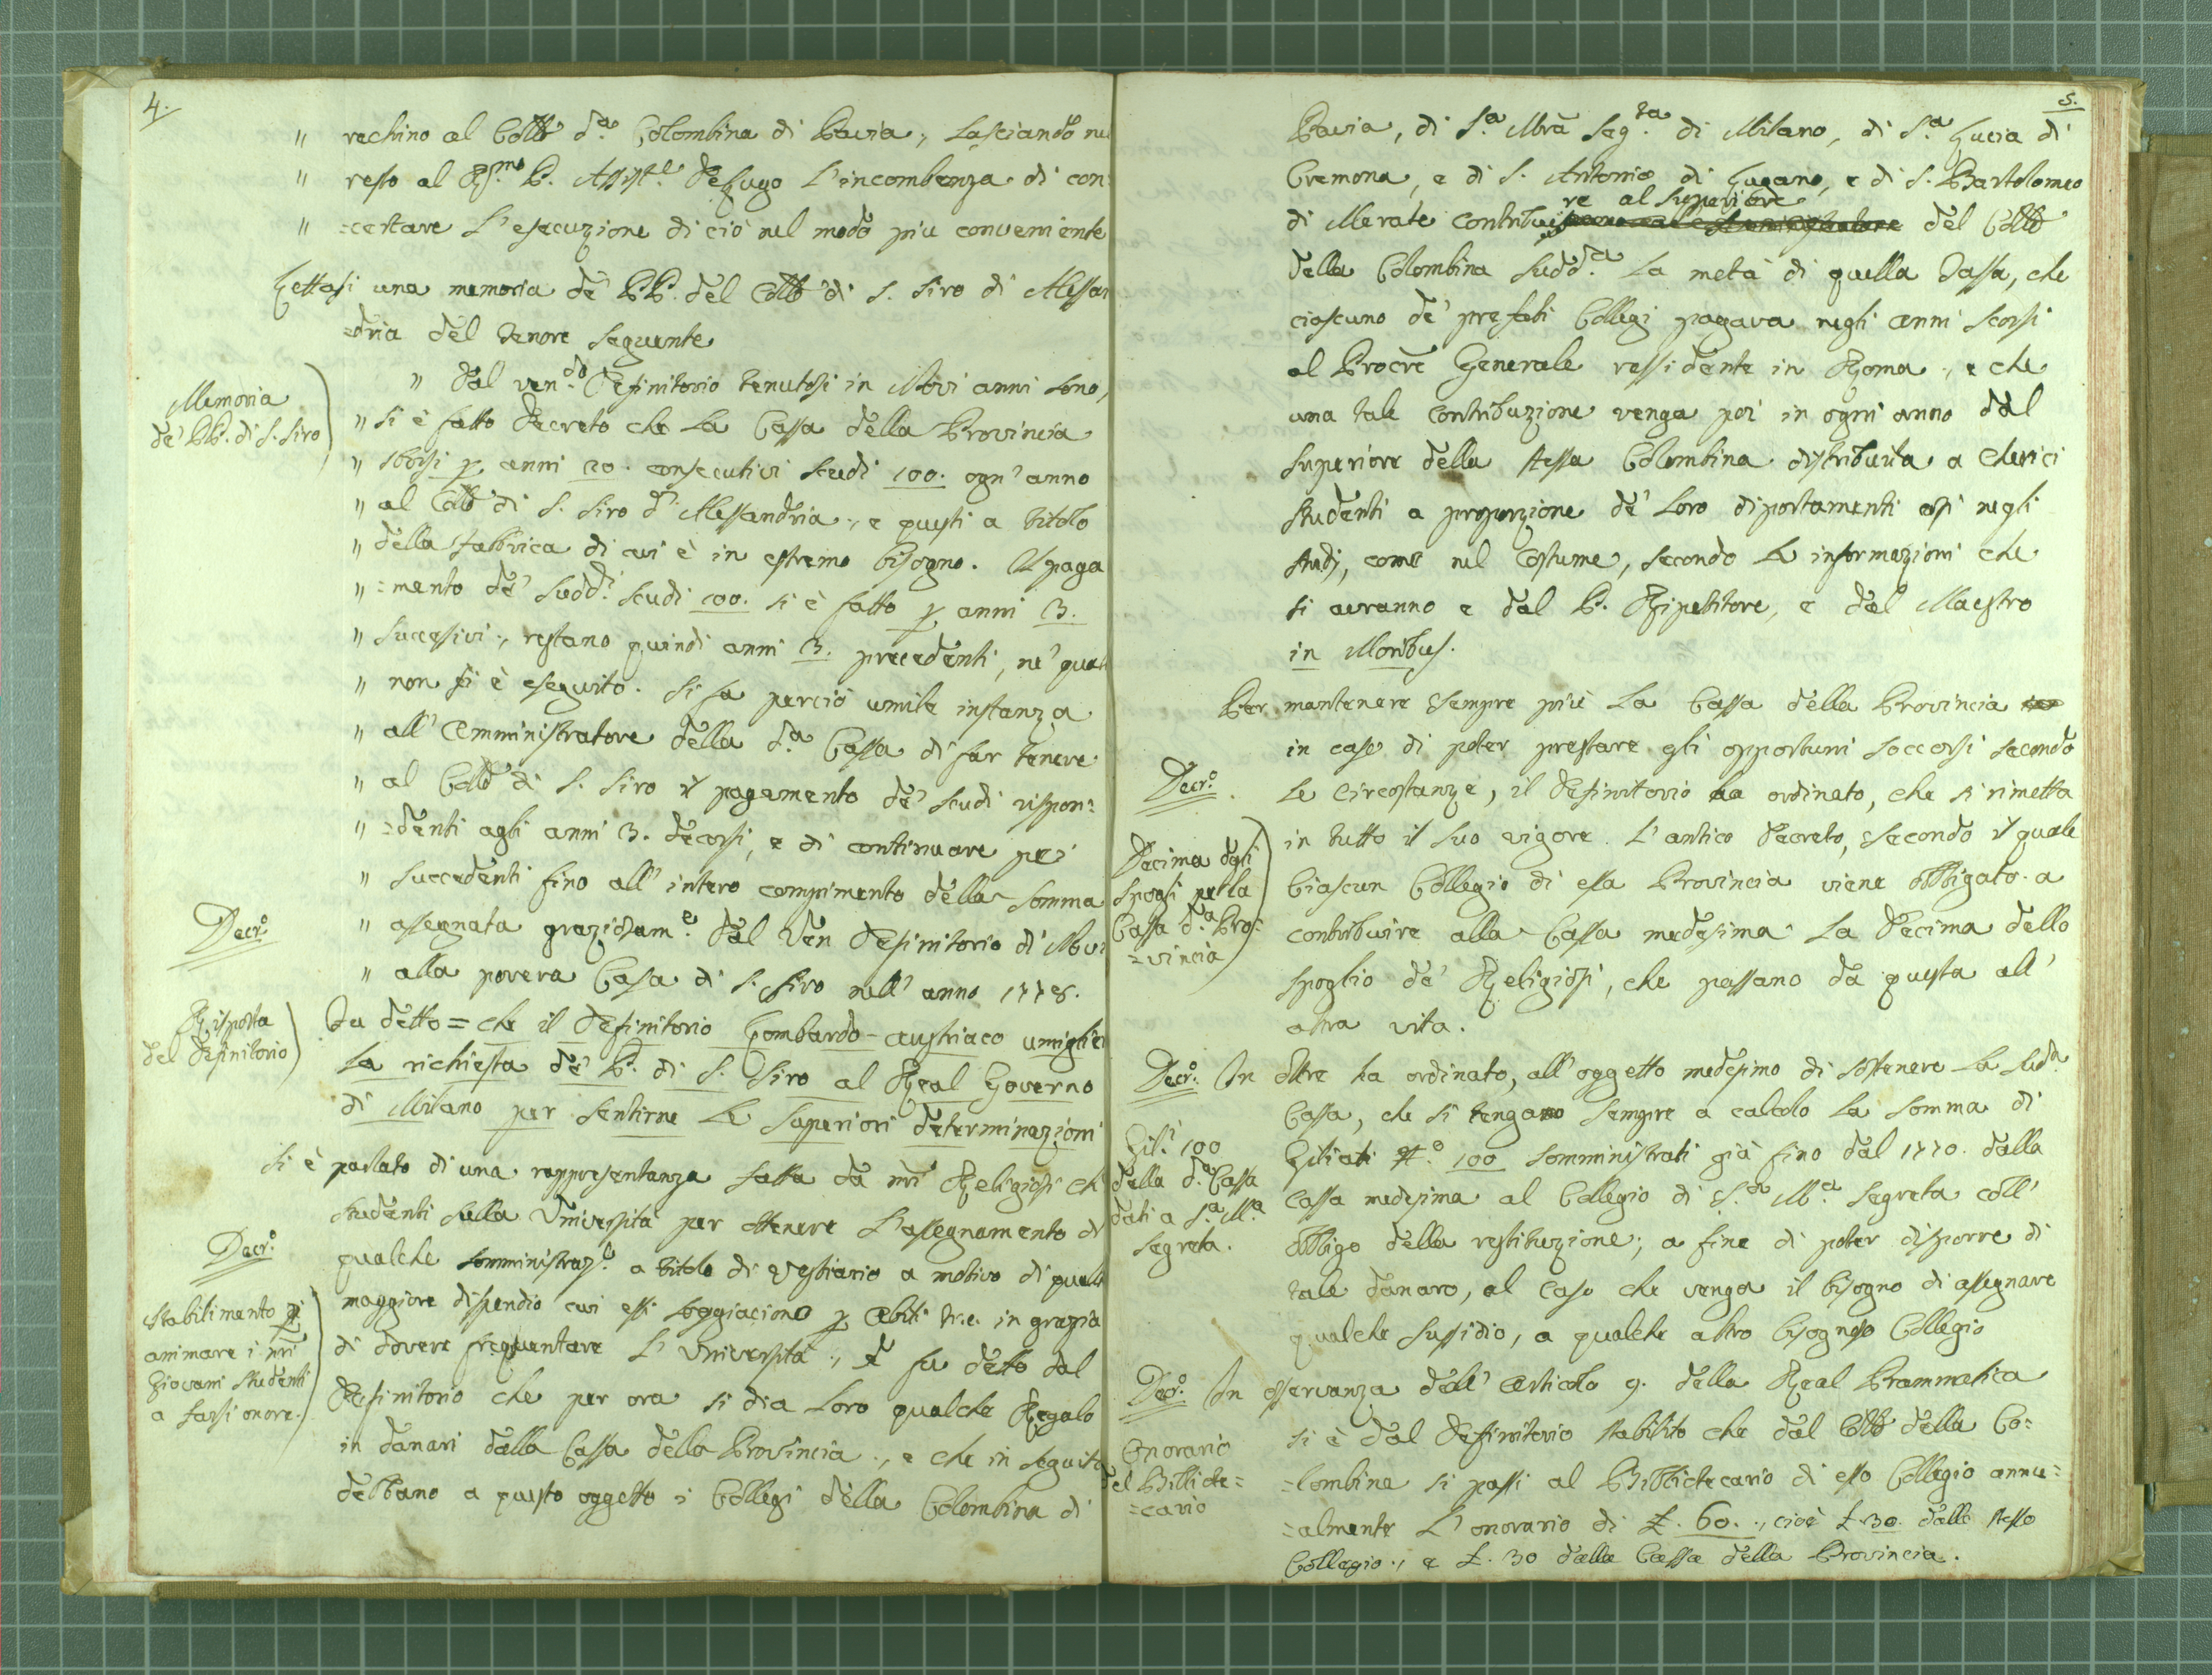 4.
" rechino al Collo d.a Colombina di Pavia, Lasciando nel
" resto al R.mo P. Assist.e DeLugo L'incombenza di con=
" =certare L'esecuzione di ciò nel modo più conveniente
Lettasi una memoria de' PP. del Collo di S. Siro di Alessan
=dria del tenore seguente
Memoria
de' PP. di S. Siro
" Dal ven.do Definitorio tenutosi in Novi anni sono,
" si è fatto Decreto che La Cassa della Provincia
" sborsi p. anni 20. consecutivi scudi 100. ogn'anno
" al Collo di S. Siro d'Alessandria, e questi a titolo
" della fabbrica di cui è in estremo bisogno. Il paga
" =mento de' sudd.i scudi 100. si è fatto p. anni 3.
" successivi, restano quindi anni 3. precedenti, ne' quali
" non si è eseguito. Si fa perciò umile instanza
" all'Amministratore della d.a Cassa di far tenere
" al Collo di S. Siro il pagamento de' scudi rispon=
" =denti agli anni 3. decorsi, e di continuare pei
" succedenti fino all'intero compimento della somma
" assegnata graziosam.e dal Ven Definitorio di Novi
" alla povera Casa di S. Siro nell'anno 1778.
Decr.o
Risposta
del Definitorio
Fu detto = che il Definitorio Lombardo-austriaco umiglierà
La richiesta de' P. di S. Siro al Real Governo
di Milano per sentirne Le superiori determinazioni
Si è parlato di una rappresentanza fatta da nri Religiosi ch
studenti sulla Università per ottenere L'assegnamento di
Decr.o
qualche somministraz.e a titolo di vestiario a motivo di quell
maggiore dispendio cui essi soggiaciono p. abiti &c. in grazia
di dovere frequentare L'Università, e fu detto dal
Definitorio che per ora si dia Loro qualche Regalo
in danari dalla Cassa della Provincia, e che in seguito
debbano a questo oggetto i Collegi della Colombina di
Stabilimento p.
animare i nri
Giovani studenti
a farsi onore.
5.
Pavia, di S.a Mra Seg.ta di Milano, di S.a Lucia di
Cremona, e di S. Antonio di Lugano, e di S. Bartolomeo
re al Superiore
di Merate contribui del Collo
della Colombina sudd.a La metà di quella tassa, che
ciascuno de' prefati Collegi pagava negli anni scorsi
al Procre Generale ressidente in Roma, e che
una tale contribuzione venga poi in ogni anno dal
superiore della stessa Colombina distribuita a Cherici
studenti a proporzione de' Loro diportamenti così negli
studj, come nel costume, secondo Le informazioni che
si avranno e dal P. Ripetitore, e dal Maestro
in Moribus.
Per mantenere sempre più La Cassa della Provincia
in caso di poter prestare gli opportuni soccorsi secondo
Decr.o
Le circostanze, il Definitorio ha ordinato, che si rimetta
in tutto il suo vigore L'antico Decreto, secondo il quale
Ciascun Collegio di essa Provincia viene obbligato a
contribuire alla Cassa medesima La Decima dello
spoglio de' Religiosi, che passano da questa all'
altra vita.
Decima degli
Spogli per la
Cassa d.a Pro=
=vincia
Decr.o In oltre ha ordinato, all'oggetto medesimo di sostenere La sud.a
Cassa, che si tenga sempre a calcolo La somma di
Giliati N.o 100 somministrati già fino dal 1770. dalla
cassa medesima al Collegio di S.a M.a Segreta coll'
obbligo della restituzione; a fine di poter disporre di
tale danaro, al caso che venga il bisogno di assegnare
qualche sussidio, a qualche altro bisognoso Collegio
Gil.i 100
della d.a Cassa
dati a S.a M.a
Segreta.
Decr.o In osservanza dell'articolo 9. della Real Prammatica
si è dal Definitorio stabilito che dal Collo della Co=
=lombina si passi al Bibliotecario di esso Collegio annu=
=almente L'onorario di £. 60., cioè £. 30. dallo stesso
Collegio, e £. 30 dalla Cassa della Provincia.
Onorario
del Bibliote=
=cario